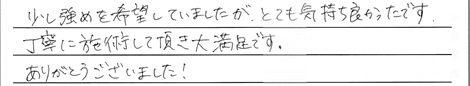 少し強めを希望していましたが、とても気持ち良かったです.
丁寧に施術して頂き大満足です。
ありがとうございました!